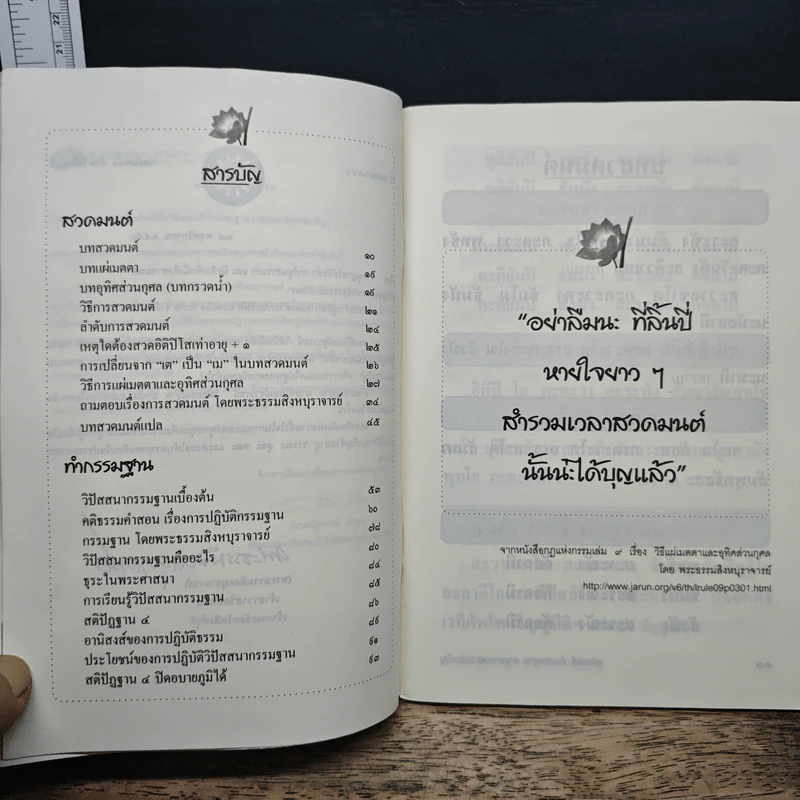 22
21
สารบัญ
สวดมนต์
บทสวดมนต์ ๑๐
บทแผ่เมตตา ๑๙
บทอุทิศส่วนกุศล (บทกรวดน้ำ) ๑๙
วิธีการสวดมนต์ ๒๑
ลำดับการสวดมนต์ ๒๔
เหตุใดต้องสวดอิติปิโสเท่าอายุ + ๑ ๒๕
การเปลี่ยนจาก “เต” เป็น “เม” ในบทสวดมนต์ ๒๖
วิธีการแผ่เมตตาและอุทิศส่วนกุศล ๒๗
ถามตอบเรื่องการสวดมนต์ โดยพระธรรมสิงหบุราจารย์ ๓๔
บทสวดมนต์แปล ๔๕
ทำกรรมฐาน
วิปัสสนากรรมฐานเบื้องต้น ๕๓
คติธรรมคำสอน เรื่องการปฏิบัติกรรมฐาน ๖๐
กรรมฐาน โดยพระธรรมสิงหบุราจารย์ ๗๘
วิปัสสนากรรมฐานคืออะไร ๘๐
ธุระในพระศาสนา ๘๔
การเรียนรู้วิปัสสนากรรมฐาน ๘๕
สติปัฏฐาน ๔ ๘๖
อานิสงส์ของการปฏิบัติธรรม ๘๙
ประโยชน์ของการปฏิบัติวิปัสสนากรรมฐาน ๙๑
สติปัฏฐาน ๔ ปิดอบายภูมิได้ ๙๓
“อย่าลืมนะ ที่ลิ้นปี่
หายใจยาว ๆ
สำรวมเวลาสวดมนต์
นั้นน่ะได้บุญแล้ว”
จากหนังสือกฎแห่งกรรมเล่ม ๙ เรื่อง วิธีแผ่เมตตาและอุทิศส่วนกุศล
โดย พระธรรมสิงหบุราจารย์
http://www.jarun.org/v6/th/lrule09p0301.html